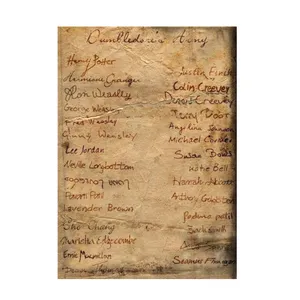 Dumbledore's Army
Harry Potter
Hermione Granger
Ron Weasley
George Weasley
Fred Weasley
Ginny Weasley
Lee Jordan
Neville Longbottom
Lavender Brown
Cho Chang
Ernie Macmillan
Justin Finch
Colin Creevey
Dennis Creevey
Terry Boot
Angelina Johnson
Michael Corner
Susan Bones
Katie Bell
Hannah Abbott
Anthony Goldstein
Padma Patil
Seamus Finnigan